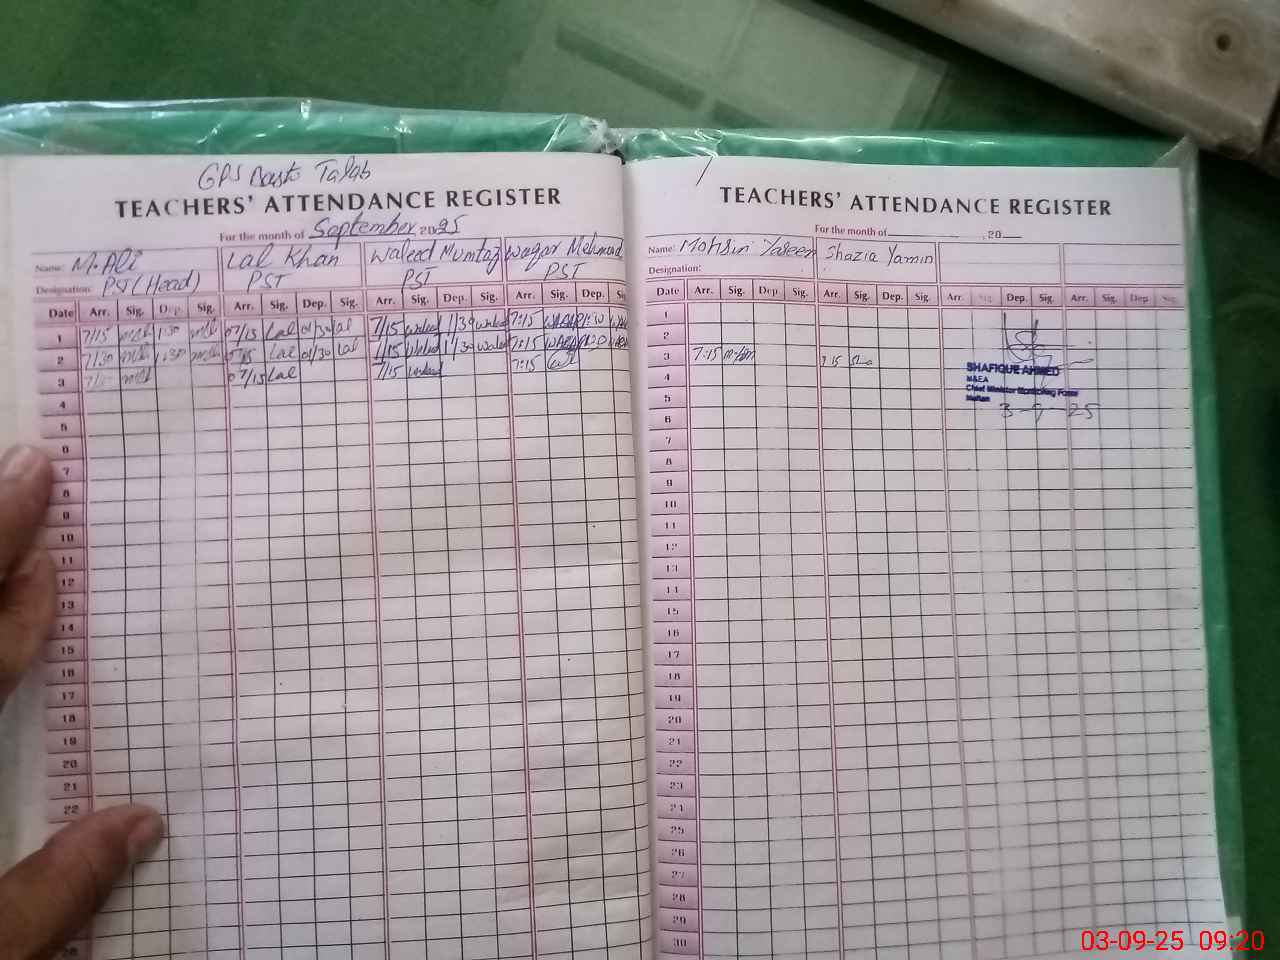 GPS Basti Talab
TEACHERS' ATTENDANCE REGISTER
For the month of September 2025
Name: M.Ali Lal Khan Waleed Mumtaz Waqar Mehmood
Designation: PST (Head) PST PST PST
Date Arr. Sig. Dep. Sig. Arr. Sig. Dep. Sig. Arr. Sig. Dep. Sig. Arr. Sig. Dep. Sig.
1 7/15 1:30 07/15 Lal 01/30 Lal 7/15 waleed 1/30 waleed 7:15 WAQAR 1:30
2 7/30 1:30 07/15 Lal 01/30 Lal 7/15 waleed 1/30 waleed 7:15 WAQAR 1:30
3 07/15 Lal 7/15 waleed 7:15
4
5
6
7
8
9
10
11
12
13
14
15
16
17
18
19
20
21
22
TEACHERS' ATTENDANCE REGISTER
For the month of , 20
Name: Mohsin Yaseen Shazia Yamin
Designation:
Date Arr. Sig. Dep. Sig. Arr. Sig. Dep. Sig. Arr. Sig. Dep. Sig. Arr. Sig. Dep. Sig.
1
2
3 7:15 7 15
4
5
6
7
8
9
10
11
12
13
14
15
16
17
18
19
20
21
22
23
24
25
26
27
28
29
30
SHAFIQUE AHMED
M&EA
Chief Minister Monitoring Force
Multan
3-9-25
03-09-25 09:20